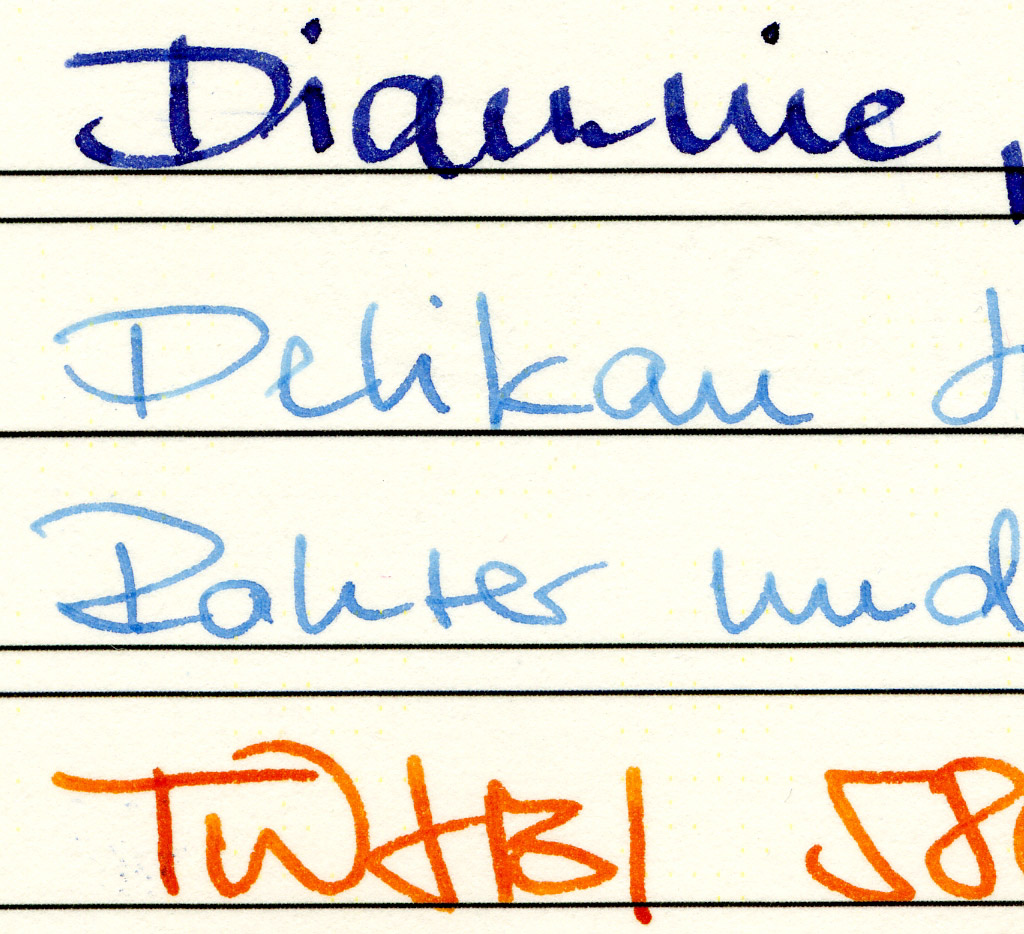 Diamine
Pelikan
Rohrer und
TWSBI 580